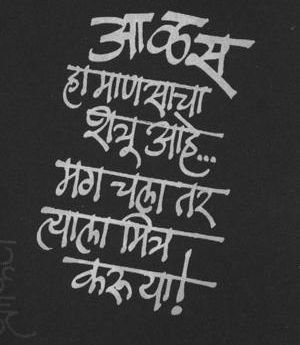 आळस
हा माणसाचा
शत्रू आहे...
मग चला तर
त्याला मित्र
करूया!